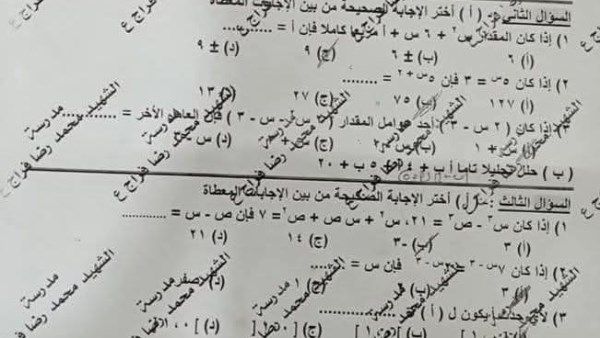 السؤال الثاني : ( أ ) أختر الإجابة الصحيحة من بين الإجابات المعطاة
١) إذا كان المقدار س٢ + ٦ س + أ مربعا كاملا فإن أ = ..........
(أ) ٦ (ب) ± ٦ (ج) ٩ (د) ± ٩
٢) إذا كان ٥س = ٣ فإن ٥س + ٢ = ........
(أ) ١٢٧ (ب) ٧٥ (ج) ٢٧ (د) ١٣
إذا كان ( ٢ س - ٣ ) أحد عوامل المقدار س٢ - س - ٣ ) فإن العامل الآخر = ............
+ ١ (ب) (ج) (د) س
( ب ) حلل تحليلا تاما أ ب + ٤ أ + ٥ ب + ٢٠
السؤال الثالث : ( أ ) أختر الإجابة الصحيحة من بين الإجابات المعطاة
١) إذا كان س٣ - ص٣ = ٢١، س٢ + س ص + ص٢ = ٧ فإن ص - س = ............
(أ) ٣ (ب) -٣ (ج) ١٤ (د) ٢١
٢) إذا كان ٧س - ٣ = س - ٣ فإن س = .....
(أ) ٣ (ج) ١ (د) صفر
٣) يكون ل ( أ ) ................
مدرسة الشهيد محمد رضا فراج ع